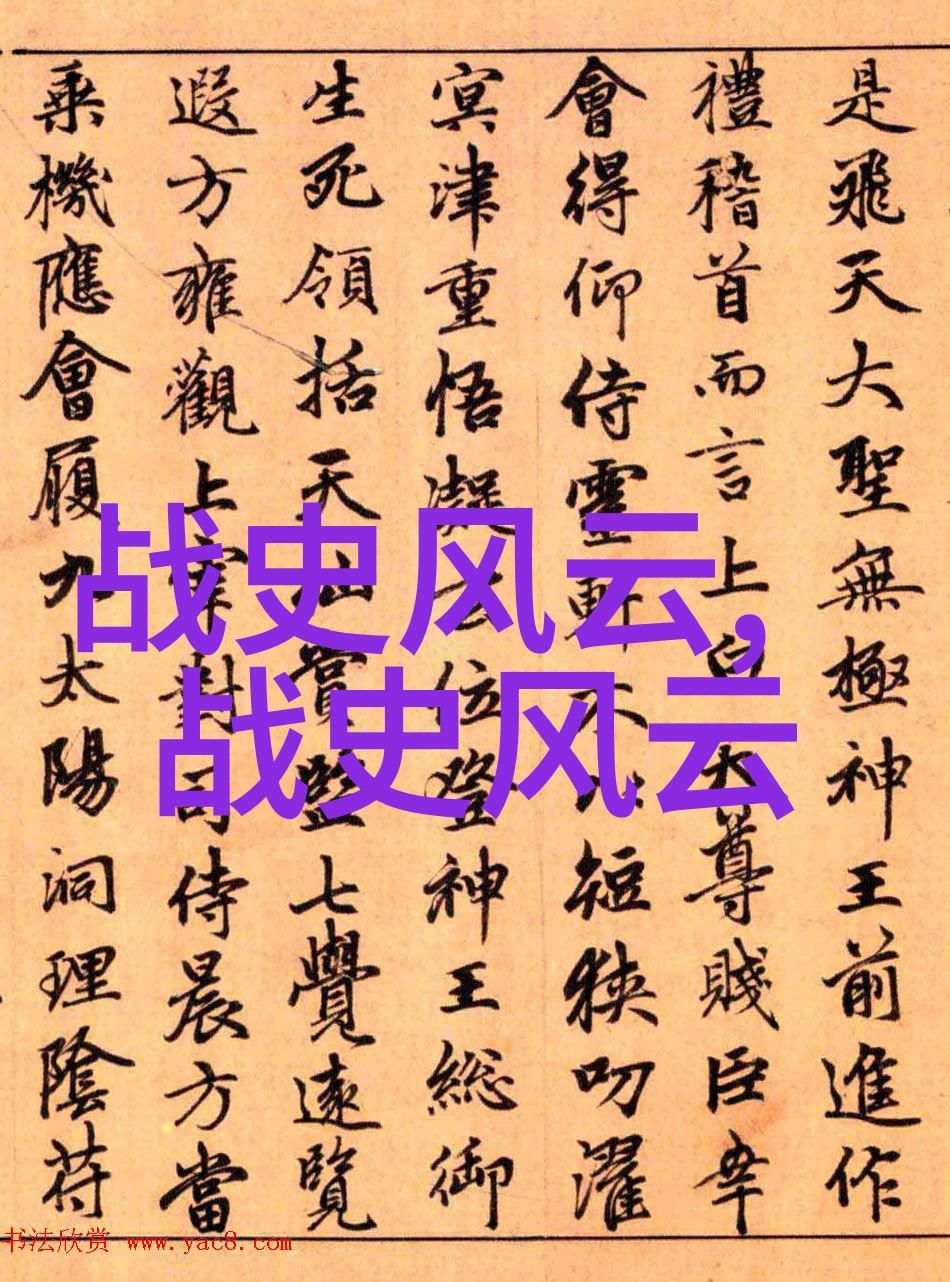 是飛天大聖無極神王前進作
禮稽首而言上白大尊賤臣幸
會得仰侍靈軒不以短狹叨濯
冥津重悟凝玄位登神王総御
生死領括天仙賞監七覺遠覽
遐方雍觀上宰對司侍晨方當
乗機應會履九太陽洞理陰苻
战史风云,
战史风云
书法欣赏 www.yac8.com